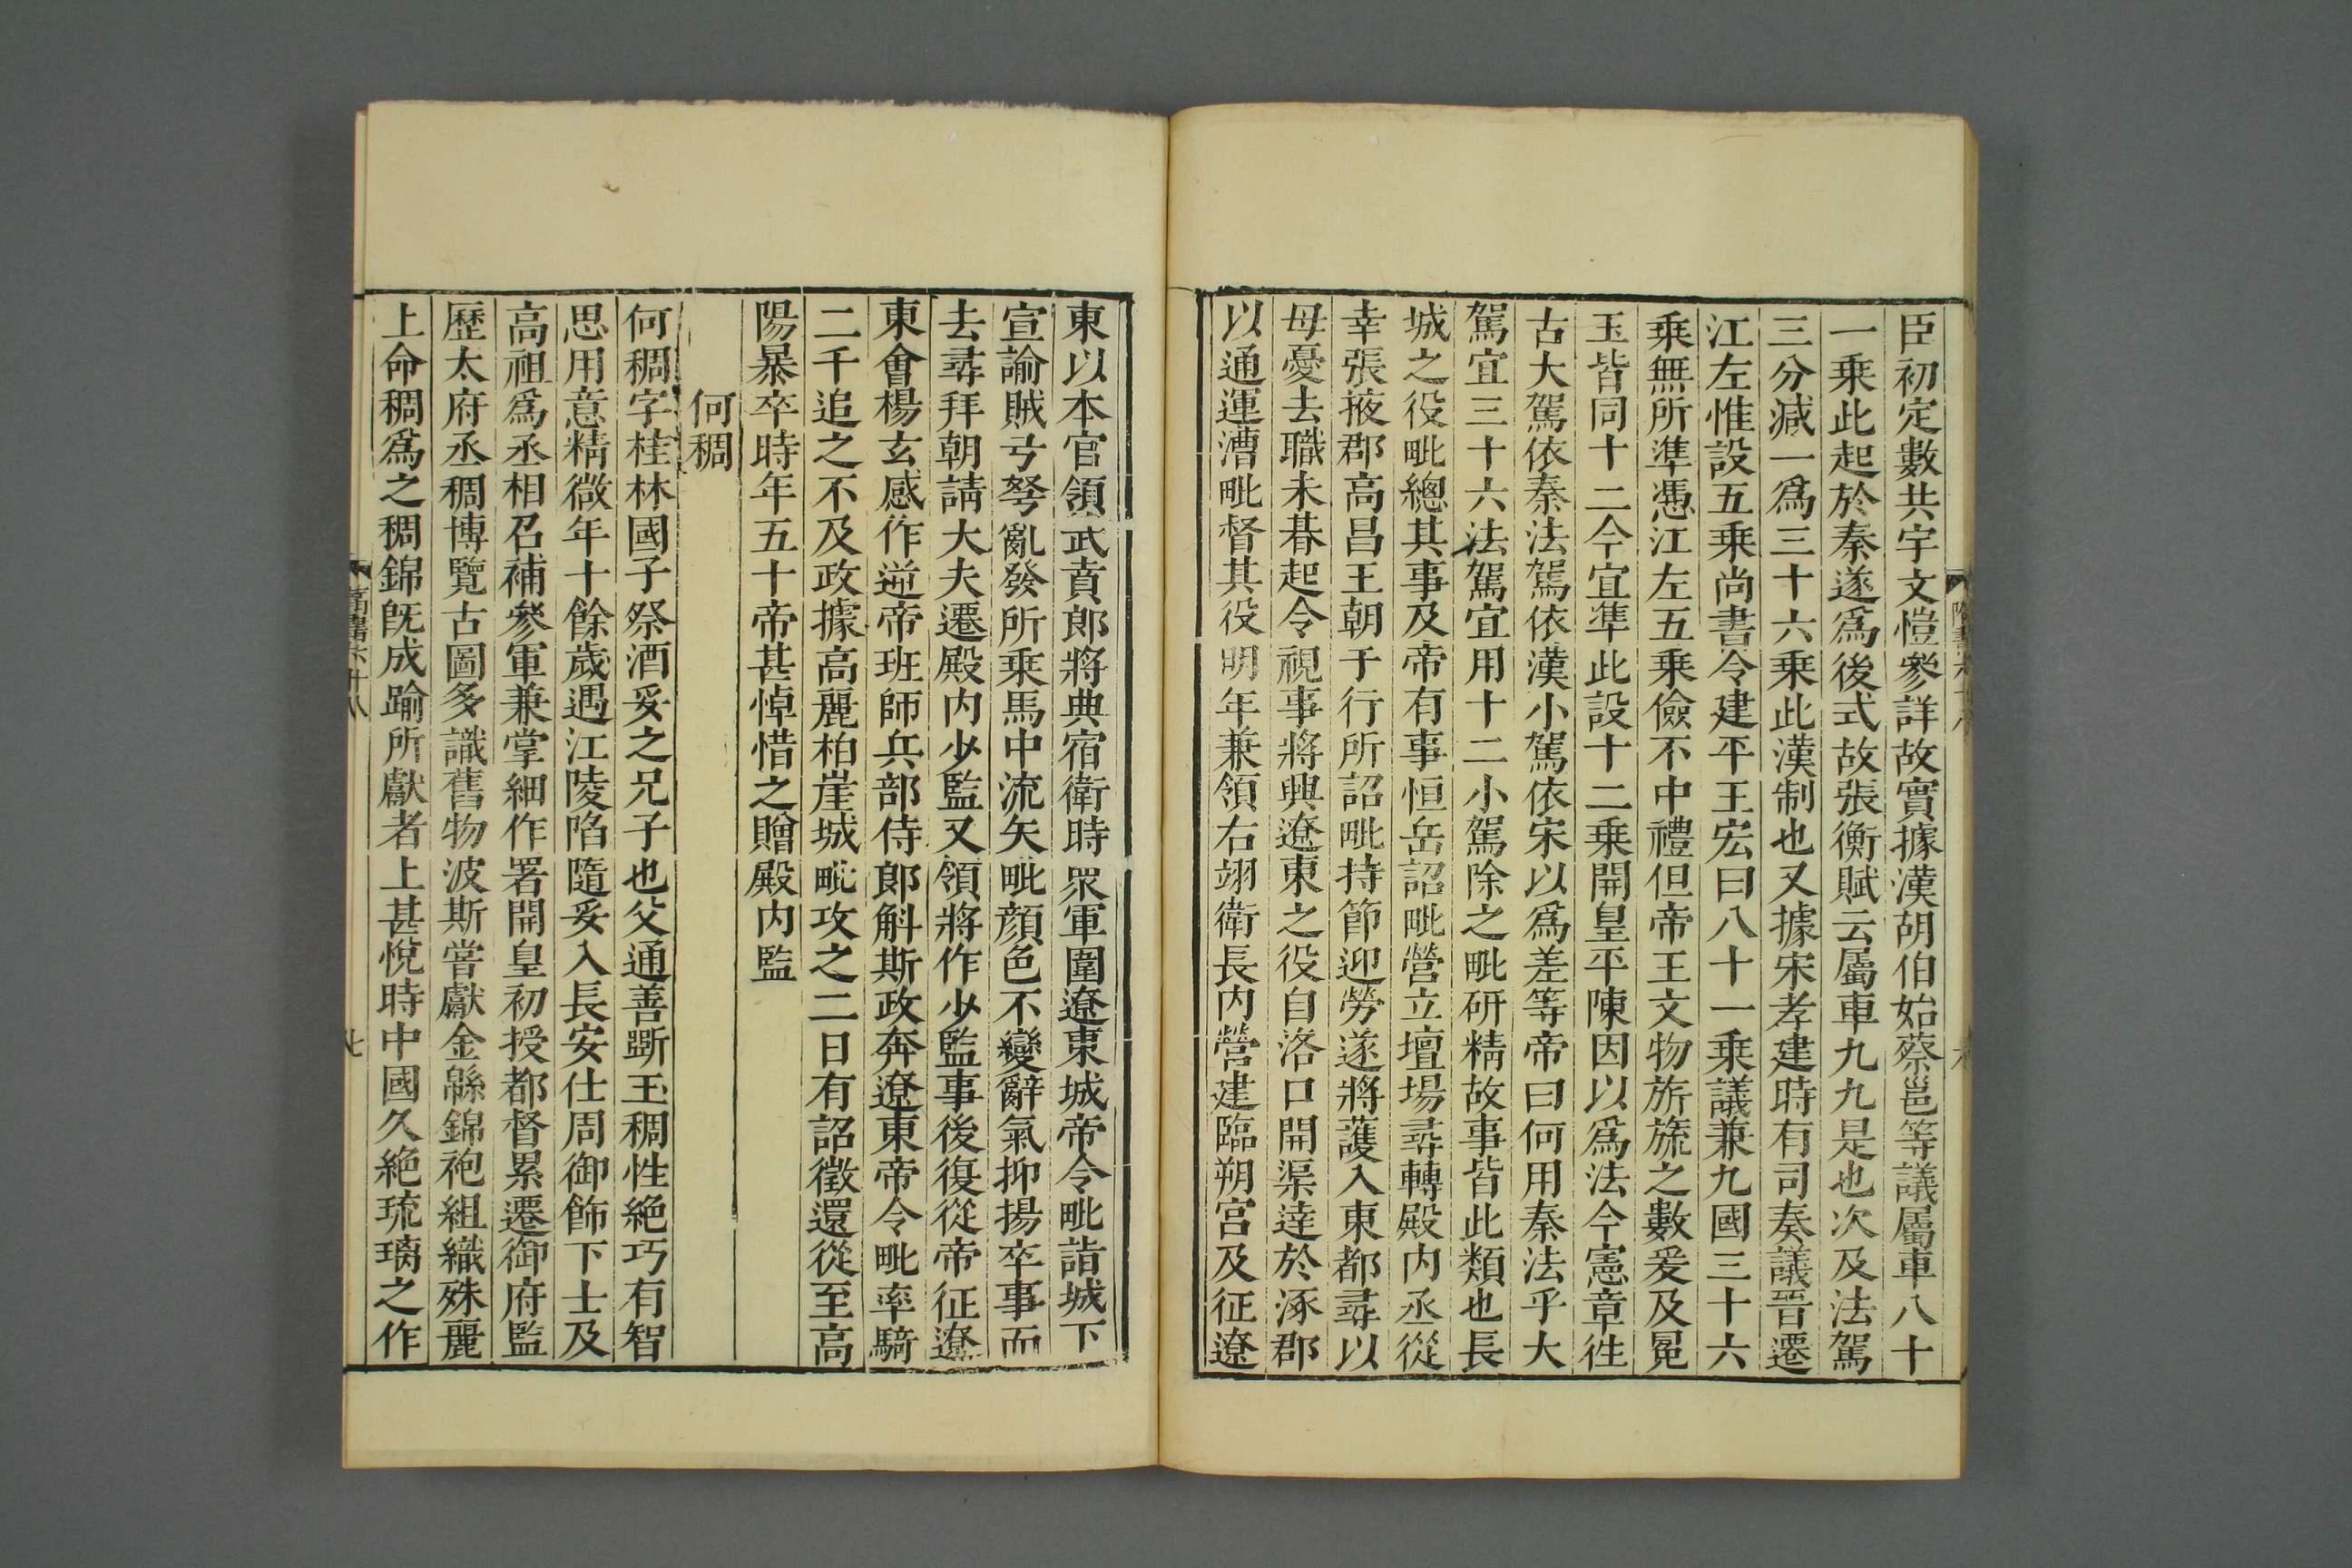 臣初定數共宇文愷參詳故實據漢胡伯始蔡邕等議屬車八十
一乘此起於秦遂爲後式故張衡賦云屬車九九是也次及法駕
三分減一爲三十六乘此漢制也又據宋孝建時有司奏議晉遷
江左惟設五乘尚書令建平王宏曰八十一乘議兼九國三十六
乘無所準憑江左五乘儉不中禮但帝王文物旂旒之數爰及冕
玉皆同十二今宜準此設十二乘開皇平陳因以爲法今憲章往
古大駕依秦法駕依漢小駕依宋以爲差等帝曰何用秦法乎大
駕宜三十六法駕宜用十二小駕除之毗研精故事皆此類也長
城之役毗總其事及帝有事恒岳詔毗營立壇場尋轉殿内丞從
幸張掖郡高昌王朝于行所詔毗持節迎勞遂將護入東都尋以
母憂去職未朞起令視事將興遼東之役自洛口開渠達於涿郡
以通運漕毗督其役明年兼領右翊衛長内營建臨朔宮及征遼
東以本官領武賁郎將典宿衛時衆軍圍遼東城帝令毗詣城下
宣諭賊弓弩亂發所乘馬中流矢毗顏色不變辭氣抑揚卒事而
去尋拜朝請大夫遷殿内少監又領將作少監事後復從帝征遼
東會楊玄感作逆帝班師兵部侍郎斛斯政奔遼東帝令毗率騎
二千追之不及政據高麗柏崖城毗攻之二日有詔徵還從至高
陽暴卒時年五十帝甚悼惜之贈殿内監
何稠
何稠字桂林國子祭酒妥之兄子也父通善斲玉稠性絶巧有智
思用意精微年十餘歲遇江陵陷隨妥入長安仕周御飾下士及
高祖爲丞相召補參軍兼掌細作署開皇初授都督累遷御府監
歷太府丞稠博覽古圖多識舊物波斯嘗獻金緜錦袍組織殊麗
上命稠爲之稠錦旣成踰所獻者上甚悅時中國久絶琉璃之作